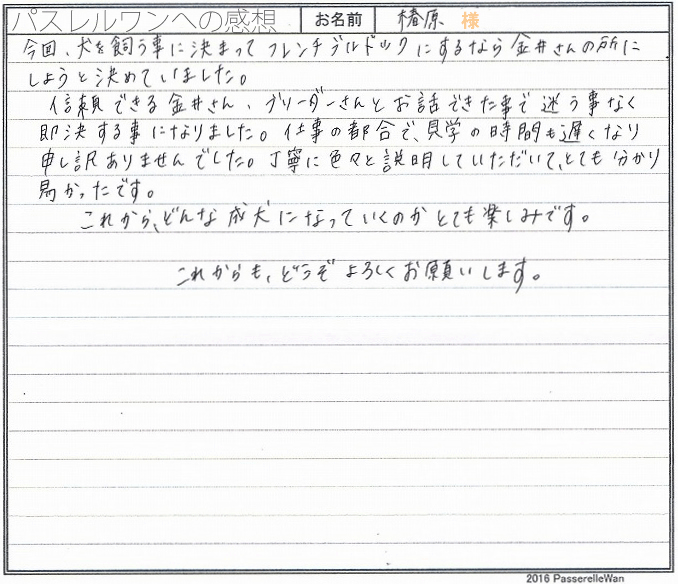 パスレルワンへの感想 お名前 椿原 様
今回、犬を飼う事に決まって フレンチブルドックにするなら金井さんの所に
しようと決めていました。
信頼できる金井さん、ブリーダーさんとお話できた事で迷う事なく
即決する事になりました。仕事の都合で、見学の時間も遅くなり
申し訳ありませんでした。丁寧に色々と説明していただいて、とても分かり
易かったです。
これから、どんな成犬になっていくのかとても楽しみです。
これからも、どうぞよろしくお願いします。
2016 PasserelleWan